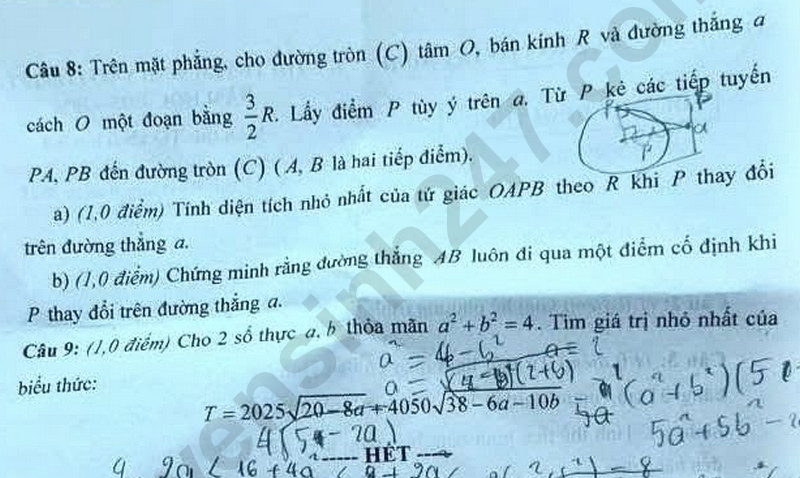 Câu 8: Trên mặt phẳng, cho đường tròn (C) tâm O, bán kính R và đường thẳng a
cách O một đoạn bằng 3/2 R. Lấy điểm P tùy ý trên a. Từ P kẻ các tiếp tuyến
PA, PB đến đường tròn (C) (A, B là hai tiếp điểm).
a) (1,0 điểm) Tính diện tích nhỏ nhất của tứ giác OAPB theo R khi P thay đổi
trên đường thẳng a.
b) (1,0 điểm) Chứng minh rằng đường thẳng AB luôn đi qua một điểm cố định khi
P thay đổi trên đường thẳng a.
Câu 9: (1,0 điểm) Cho 2 số thực a, b thỏa mãn a² + b² = 4. Tìm giá trị nhỏ nhất của
a² = 4 - b²
biểu thức:
a = √(4-b)(2+b)
(a² + b²)(5
T = 2025√20-8a + 4050√38-6a-10b
5a
5a² + 5b² -
4(5 - 2a)
HẾT
yensinh247.com